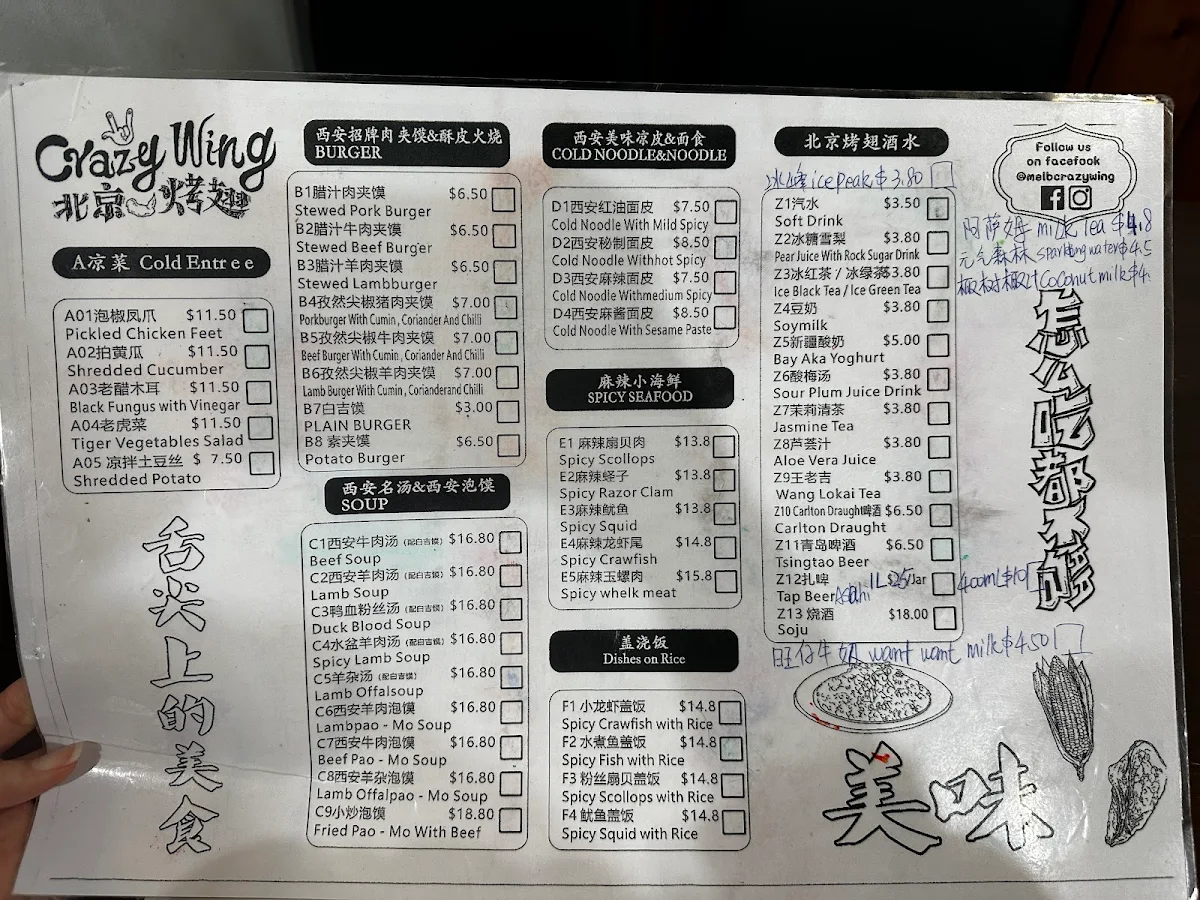 Crazy Wing
北京烤翅
A凉菜 Cold Entree
A01泡椒凤爪 $11.50
Pickled Chicken Feet
A02拍黄瓜 $11.50
Shredded Cucumber
A03老醋木耳 $11.50
Black Fungus with Vinegar
A04老虎菜 $11.50
Tiger Vegetables Salad
A05 凉拌土豆丝 $ 7.50
Shredded Potato
舌尖上的美食
西安招牌肉夹馍&酥皮火烧
BURGER
B1腊汁肉夹馍 $6.50
Stewed Pork Burger
B2腊汁牛肉夹馍 $6.50
Stewed Beef Burger
B3腊汁羊肉夹馍 $6.50
Stewed Lambburger
B4孜然尖椒猪肉夹馍 $7.00
Porkburger With Cumin , Coriander And Chilli
B5孜然尖椒牛肉夹馍 $7.00
Beef Burger With Cumin , Coriander And Chilli
B6孜然尖椒羊肉夹馍 $7.00
Lamb Burger With Cumin , Corianderand Chilli
B7白吉馍 $3.00
PLAIN BURGER
B8 素夹馍 $6.50
Potato Burger
西安名汤&西安泡馍
SOUP
C1西安牛肉汤 (配白吉馍) $16.80
Beef Soup
C2西安羊肉汤 (配白吉馍) $16.80
Lamb Soup
C3鸭血粉丝汤 (配白吉馍) $16.80
Duck Blood Soup
C4水盆羊肉汤 (配白吉馍) $16.80
Spicy Lamb Soup
C5羊杂汤 (配白吉馍) $16.80
Lamb Offalsoup
C6西安羊肉泡馍 $16.80
Lambpao - Mo Soup
C7西安牛肉泡馍 $16.80
Beef Pao - Mo Soup
C8西安羊杂泡馍 $16.80
Lamb Offalpao - Mo Soup
C9小炒泡馍 $18.80
Fried Pao - Mo With Beef
西安美味凉皮&面食
COLD NOODLE&NOODLE
D1西安红油面皮 $7.50
Cold Noodle With Mild Spicy
D2西安秘制面皮 $8.50
Cold Noodle Withhot Spicy
D3西安麻辣面皮 $7.50
Cold Noodle Withmedium Spicy
D4西安麻酱面皮 $8.50
Cold Noodle With Sesame Paste
麻辣小海鲜
SPICY SEAFOOD
E1 麻辣扇贝肉 $13.8
Spicy Scollops
E2麻辣蛏子 $13.8
Spicy Razor Clam
E3麻辣鱿鱼 $13.8
Spicy Squid
E4麻辣龙虾尾 $14.8
Spicy Crawfish
E5麻辣玉螺肉 $15.8
Spicy whelk meat
盖浇饭
Dishes on Rice
F1 小龙虾盖饭 $14.8
Spicy Crawfish with Rice
F2 水煮鱼盖饭 $14.8
Spicy Fish with Rice
F3 粉丝扇贝盖饭 $14.8
Spicy Scollops with Rice
F4 鱿鱼盖饭 $14.8
Spicy Squid with Rice
北京烤翅酒水
冰峰 ice Peak $3.80
Z1汽水 $3.50
Soft Drink
Z2冰糖雪梨 $3.80
Pear Juice With Rock Sugar Drink
Z3冰红茶 / 冰绿茶$3.80
Ice Black Tea / Ice Green Tea
Z4豆奶 $3.80
Soymilk
Z5新疆酸奶 $5.00
Bay Aka Yoghurt
Z6酸梅汤 $3.80
Sour Plum Juice Drink
Z7茉莉清茶 $3.80
Jasmine Tea
Z8芦荟汁 $3.80
Aloe Vera Juice
Z9王老吉 $3.80
Wang Lokai Tea
Z10 Carlton Draught啤酒 $6.50
Carlton Draught
Z11青岛啤酒 $6.50
Tsingtao Beer
Z12扎啤 1L $25/Jar 400ml $10
Tap Beer Asahi
Z13 烧酒 $18.00
Soju
旺仔牛奶 want want milk $4.50
Follow us
on facefook
@melbcrazywing
阿萨姆 milk Tea $4.8
元气森林 sparkling water $4.5
椰树椰汁 Coconut milk $4.
怎么吃都不够
美味